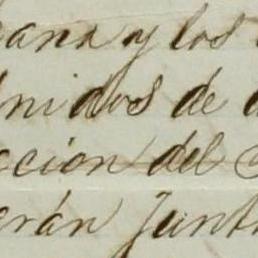 cana y los
Unidos de
ccion del
erán Junt